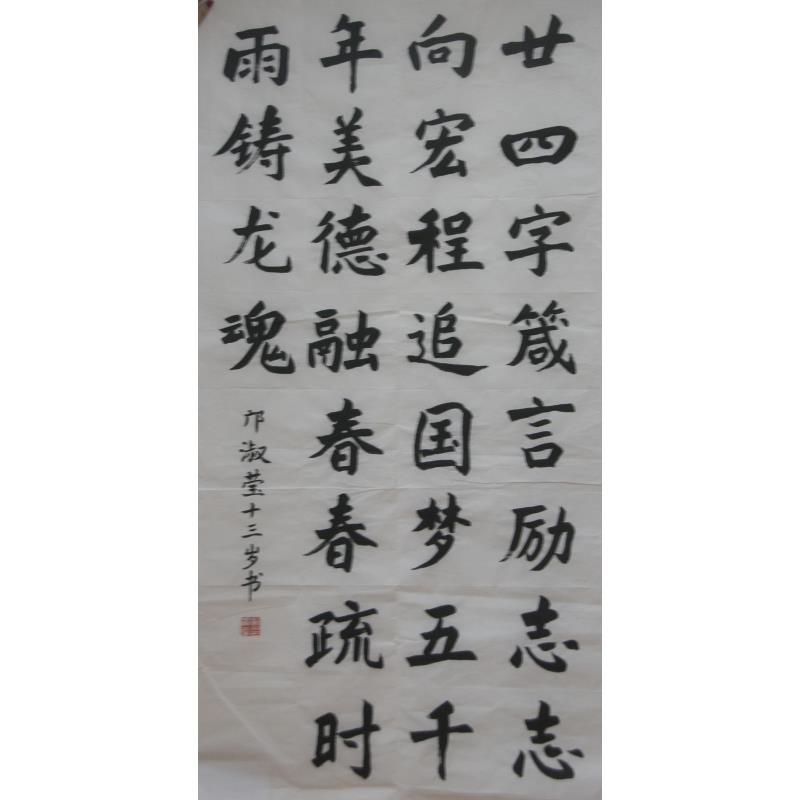 廿四字箴言励志志
向宏程追国梦五千
年美德融春春疏时
雨铸龙魂
邝淑莹十三岁书